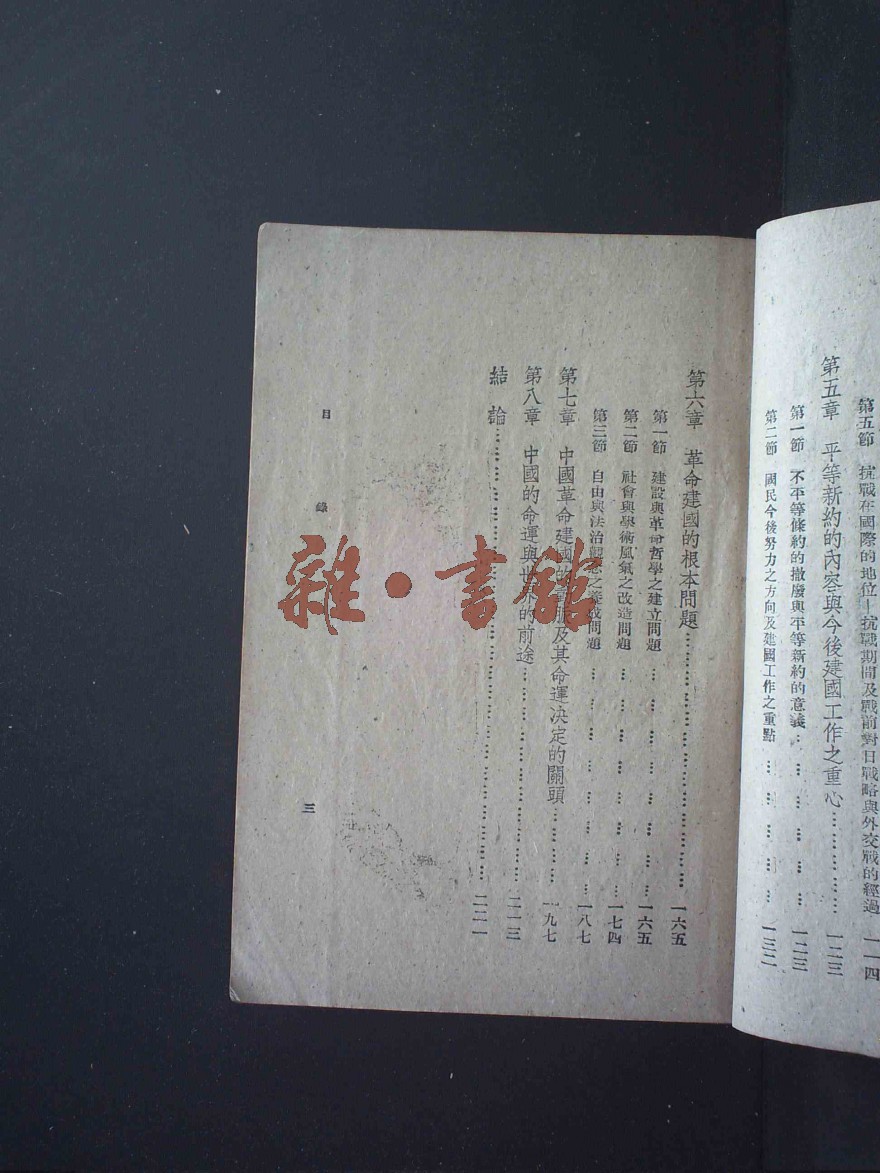 第五節　抗戰在國際的地位—抗戰期間及戰前對日戰略與外交戰的經過　一一四
第五章　平等新約的內容與今後建國工作之重心…………一二三
第一節　不平等條約的撤廢與平等新約的意義…………一二三
第二節　國民今後努力之方向及建國工作之重點…………一三二
第六章　革命建國的根本問題…………一六五
第一節　建設與革命哲學之建立問題…………一六五
第二節　社會與學術風氣之改造問題…………一七四
第三節　自由與法治觀念之養成問題…………一八七
第七章　中國革命建國的動脈及其命運決定的關頭…………一九七
第八章　中國的命運與世界的前途…………二一三
結論…………二二一
目錄
三
雜・書館